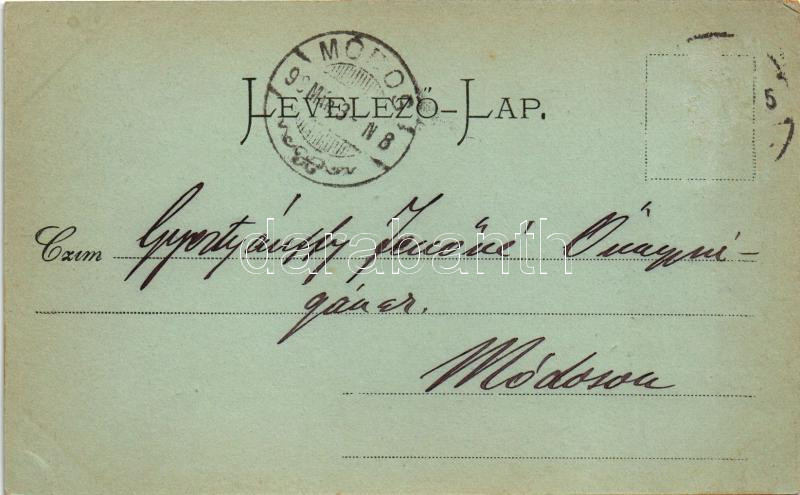 MÓDOS
LEVELEZŐ-LAP.
5
Czim Gyertyánffy Jenőné Őnagysá-
gának.
Módoson
darabanth